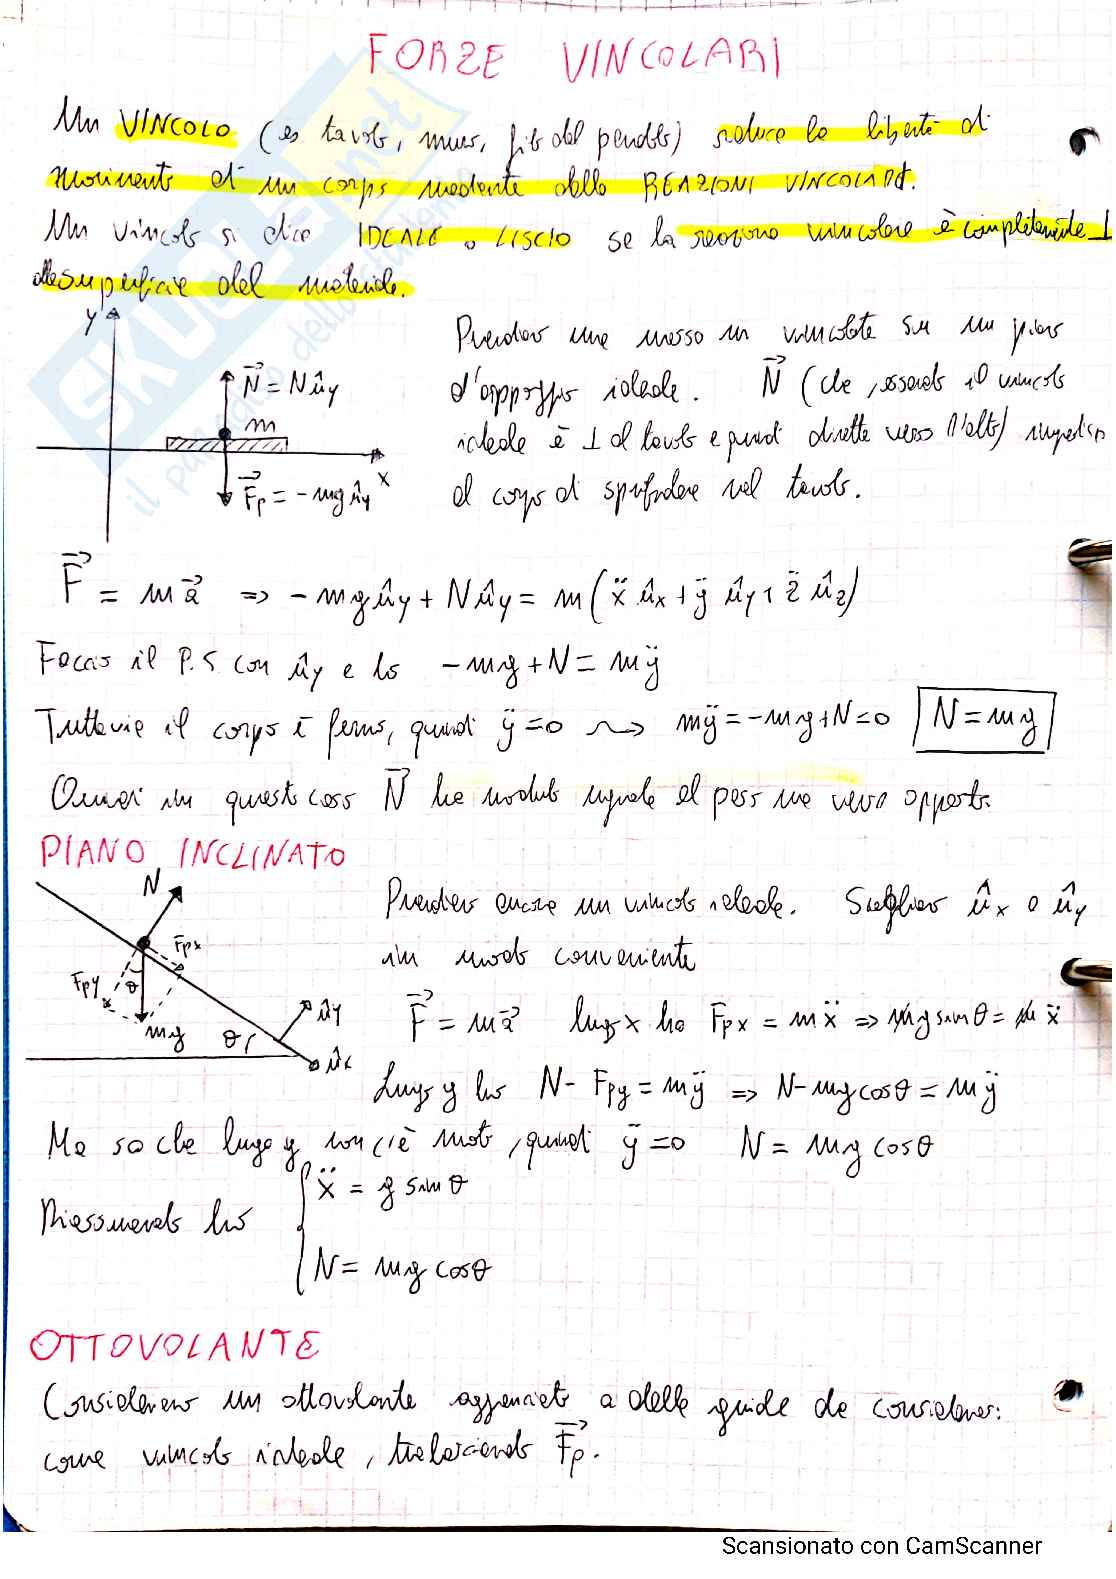 FORZE VINCOLARI
Un VINCOLO (es tavolo, muro, filo del pendolo) riduce la libertà di
movimento di un corpo mediante delle REAZIONI VINCOLARI.
Un vincolo si dice IDEALE o LISCIO se la reazione vincolare è completamente ⊥
alla superficie del materiale.
y
N⃗ = N û_y
m
x
F⃗_p = -mg û_y
Prendiamo una massa m vincolata su un piano
d'appoggio ideale. N⃗ (che, essendo il vincolo
ideale è ⊥ al tavolo e quindi diretta verso l'alto) impedisce
al corpo di sprofondare nel tavolo.
F⃗ = m a⃗ ⇒ -mg û_y + N û_y = m(ẍ û_x + ÿ û_y + z̈ û_z)
Faccio il P.S. con û_y e ho -mg + N = mÿ
Tuttavia il corpo è fermo, quindi ÿ = 0 ⇝ mÿ = -mg + N = 0 N = mg
Quindi in questo caso N⃗ ha modulo uguale al peso ma verso opposto.
PIANO INCLINATO
N
F_px
F_py
θ
mg
θ
û_y
û_x
Prendiamo ancora un vincolo ideale. Scegliamo û_x e û_y
in modo conveniente
F⃗ = m a⃗ lungo x ho F_px = mẍ ⇒ mg sin θ = m ẍ
Lungo y ho N - F_py = mÿ ⇒ N - mg cos θ = mÿ
Ma so che lungo y non c'è moto, quindi ÿ = 0 N = mg cos θ
Riassumendo ho
ẍ = g sin θ
N = mg cos θ
OTTOVOLANTE
Consideriamo un ottovolante agganciato a delle guide da considerarsi
come vincolo ideale, tralasciando F⃗_p.
SKUOLA.net
il paradiso dello studente
Scansionato con CamScanner